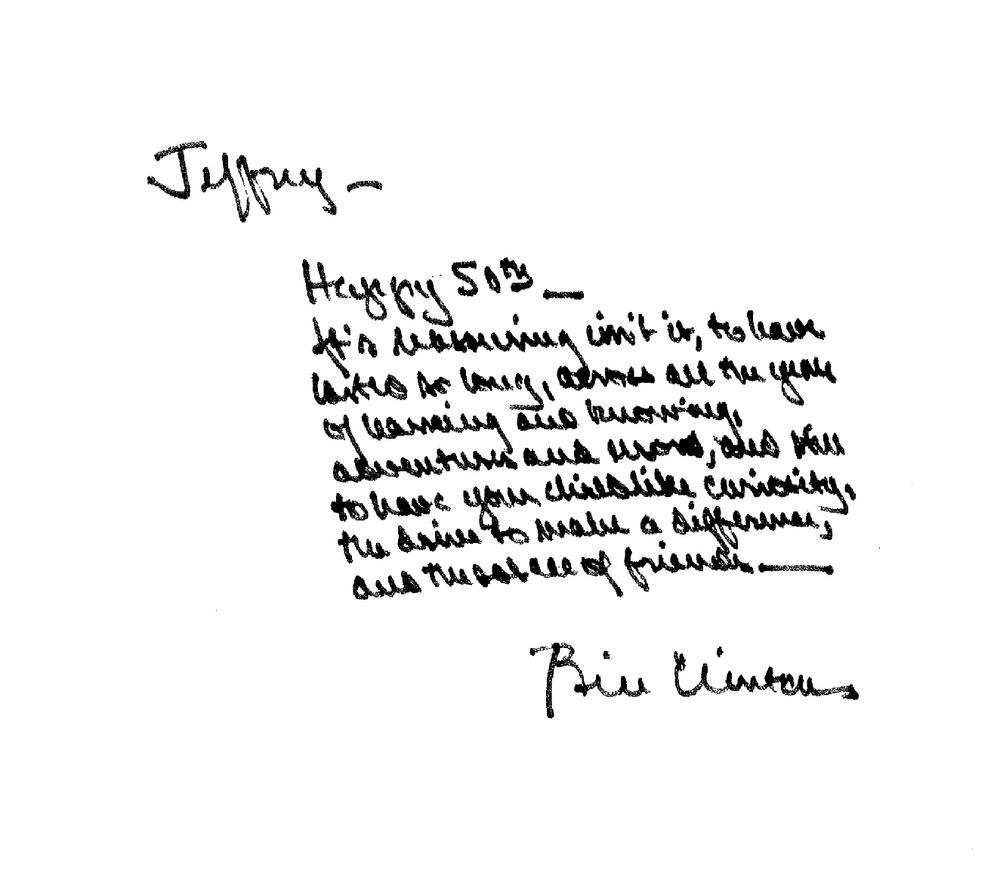 Jeffrey —
Happy 50th —
It's reassuring isn't it, to have
lasted so long, across all the years
of learning and knowing,
adventures and, and still
to have your childlike curiosity,
the drive to make a difference,
and the solace of friends. —
Bill Clinton